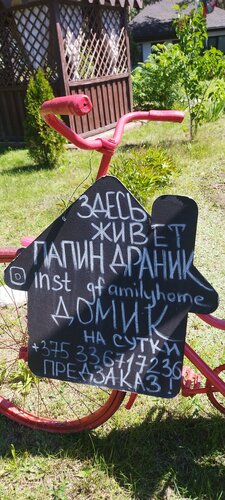 ЗДЕСЬ
ЖИВЕТ
ПАПИН ДРАНИК
inst gfamilyhome
ДОМИК
НА СУТКИ
+375 33 6717236
ПРЕДЗАКАЗ!